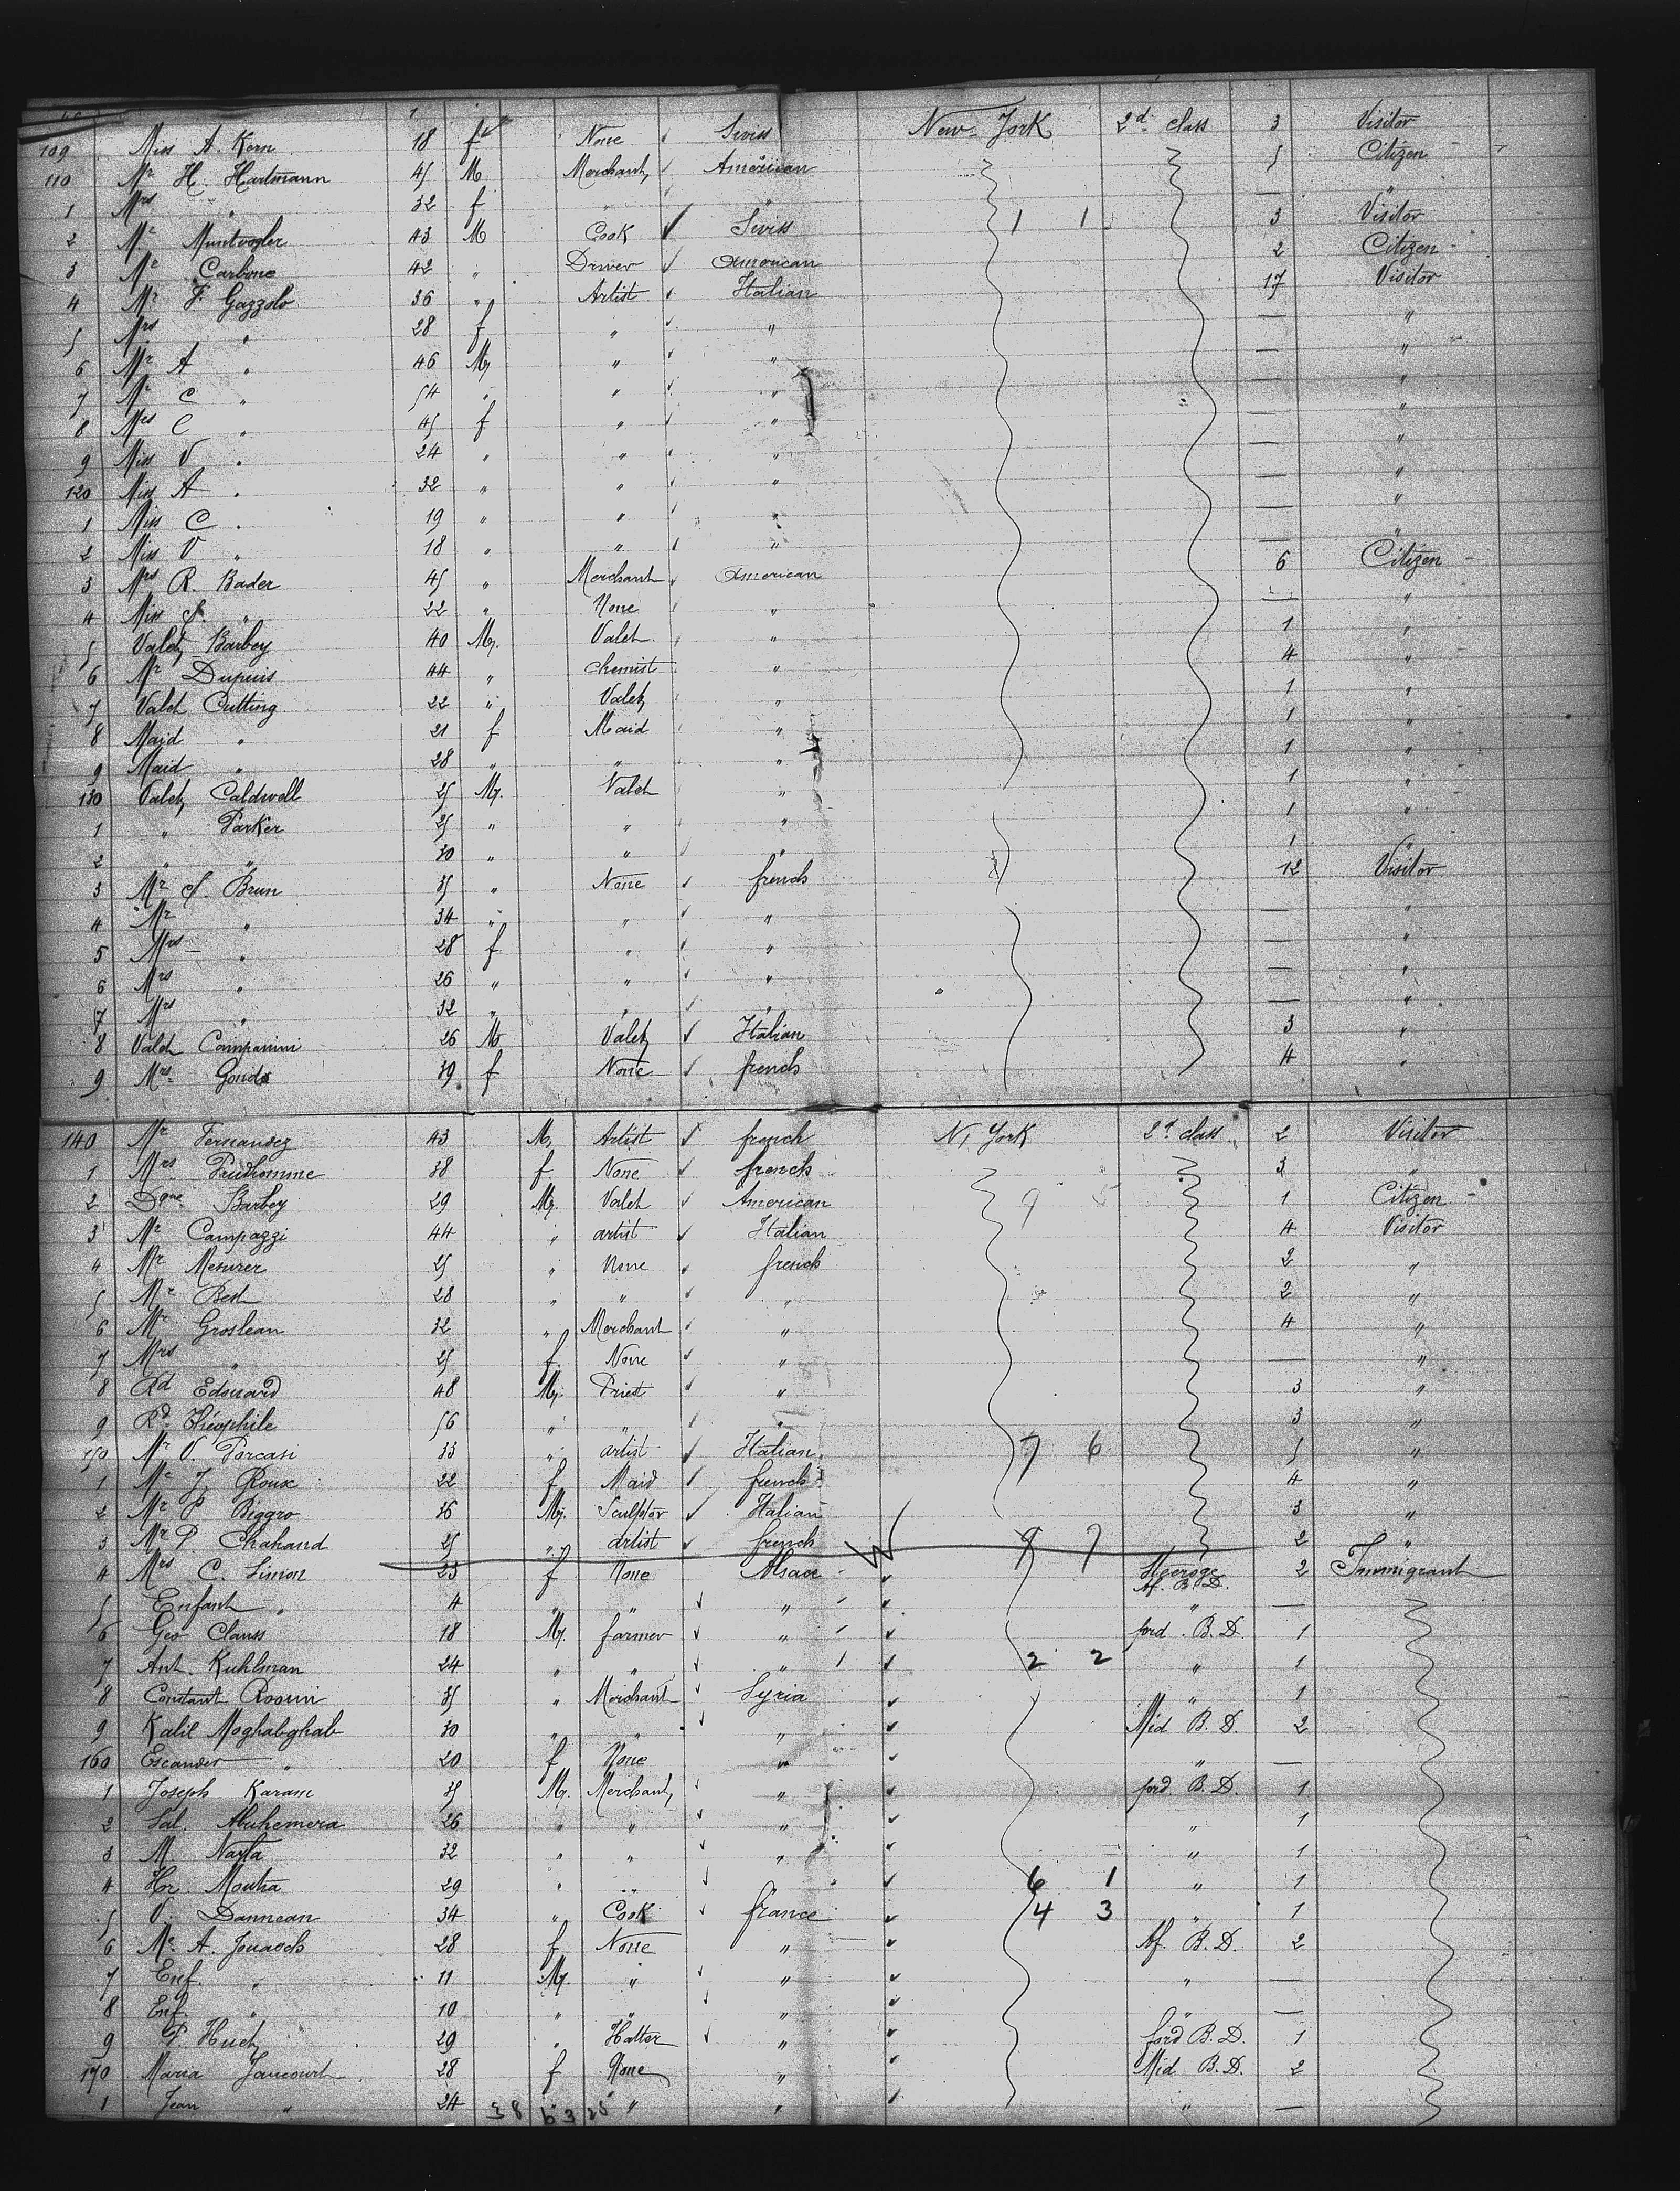 109 Miss A. Kern 18 f None Swiss New-York 2d class 3 Visitor
110 Mr H. Hartmann 45 M Merchant American 5 Citizen
1 Mrs " 32 f " " — "
2 Mr Muntvogler 43 M Cook Swiss 1 1 3 Visitor
3 Mr Carbone 42 " Driver American 2 Citizen
4 Mr F. Gazzolo 36 " Artist Italian 17 Visitor
5 Mrs " 28 f " " — "
6 Mr A " 46 M " " — "
7 Mr C " 54 " " " — "
8 Mrs C " 45 f " " — "
9 Miss V " 24 " " " — "
120 Miss A " 32 " " " — "
1 Miss C " 19 " " " — "
2 Miss V " 18 " " " — "
3 Mrs R. Bader 45 " Merchant American 6 Citizen
4 Miss S. " 22 " None " — "
5 Valet Barbey 40 M. Valet " 1 "
6 Mr Dupuis 44 " Chemist " 4 "
7 Valet Cutting 22 " Valet " 1 "
8 Maid " 21 f Maid " 1 "
9 Maid " 28 " " " 1 "
130 Valet Caldwell 25 M. Valet " 1 "
1 " Parker 25 " " " 1 "
2 " " 30 " " " 1 "
3 Mr S. Brun 35 " None french 12 Visitor
4 Mr " 34 " " " — "
5 Mrs " 28 f " " — "
6 Mrs " 26 " " " — "
7 Mrs " 32 " " " — "
8 Valet Campanini 26 M Valet Italian 3 "
9 Mrs Gouda 39 f None french 4 "
140 Mr Fernandez 43 M. Artist french N. York 2d class 2 Visitor
1 Mrs Prudhomme 38 f None french 3 "
2 Dque Barbey 29 M. Valet American 1 Citizen
3 Mr Campazzi 44 " artist Italian 4 Visitor
4 Mr Mesurer 25 " None french 2 "
5 Mr Best 28 " " " 2 "
6 Mr Groslean 32 " Merchant " 4 "
7 Mrs " 25 f. None " — "
8 Rd Edouard 48 M. Priest " 3 "
9 Rd Théophile 56 " " " 3 "
150 Mr V. Porcasi 33 " artist Italian 7 6 5 "
1 Me J. Roux 22 f Maid french 4 "
2 Mr P Biggro 36 M. Sculptor Italian 3 "
3 Mr P. Chahand 25 " Artist french 9 7 2 "
4 Mrs C. Simon 23 f None Alsace Steerage Af. B. D. 2 Immigrant
5 Enfant " 4 " " " " —
6 Geo Clauss 18 M. farmer " ford. B. D. 1
7 Ant. Kuhlman 24 " " " 2 2 " 1
8 Constant Rooum 35 " Merchant Syria " 1
9 Kalil Moghabghab 30 " " " Mid B. D. 2
160 Escander " 20 f None " " —
1 Joseph Karam 35 M. Merchant " ford. B. D. 1
2 Sal. Abuhemera 26 " " " " 1
3 M. Nayla 32 " " " " 1
4 Hr. Mouha 29 " " " 6 1 " 1
5 V. Dannean 34 " Cook france 4 3 " 1
6 Me A. Jouasch 28 f None " Af. B. D. 2
7 Enf. " 11 M. " " " —
8 Enf. " 10 " " " " —
9 P. Huet 29 " Hatter " ford B. D. 1
170 Maria Jaucourt 28 f None " Mid B. D. 2
1 Jean " 24 " " " —